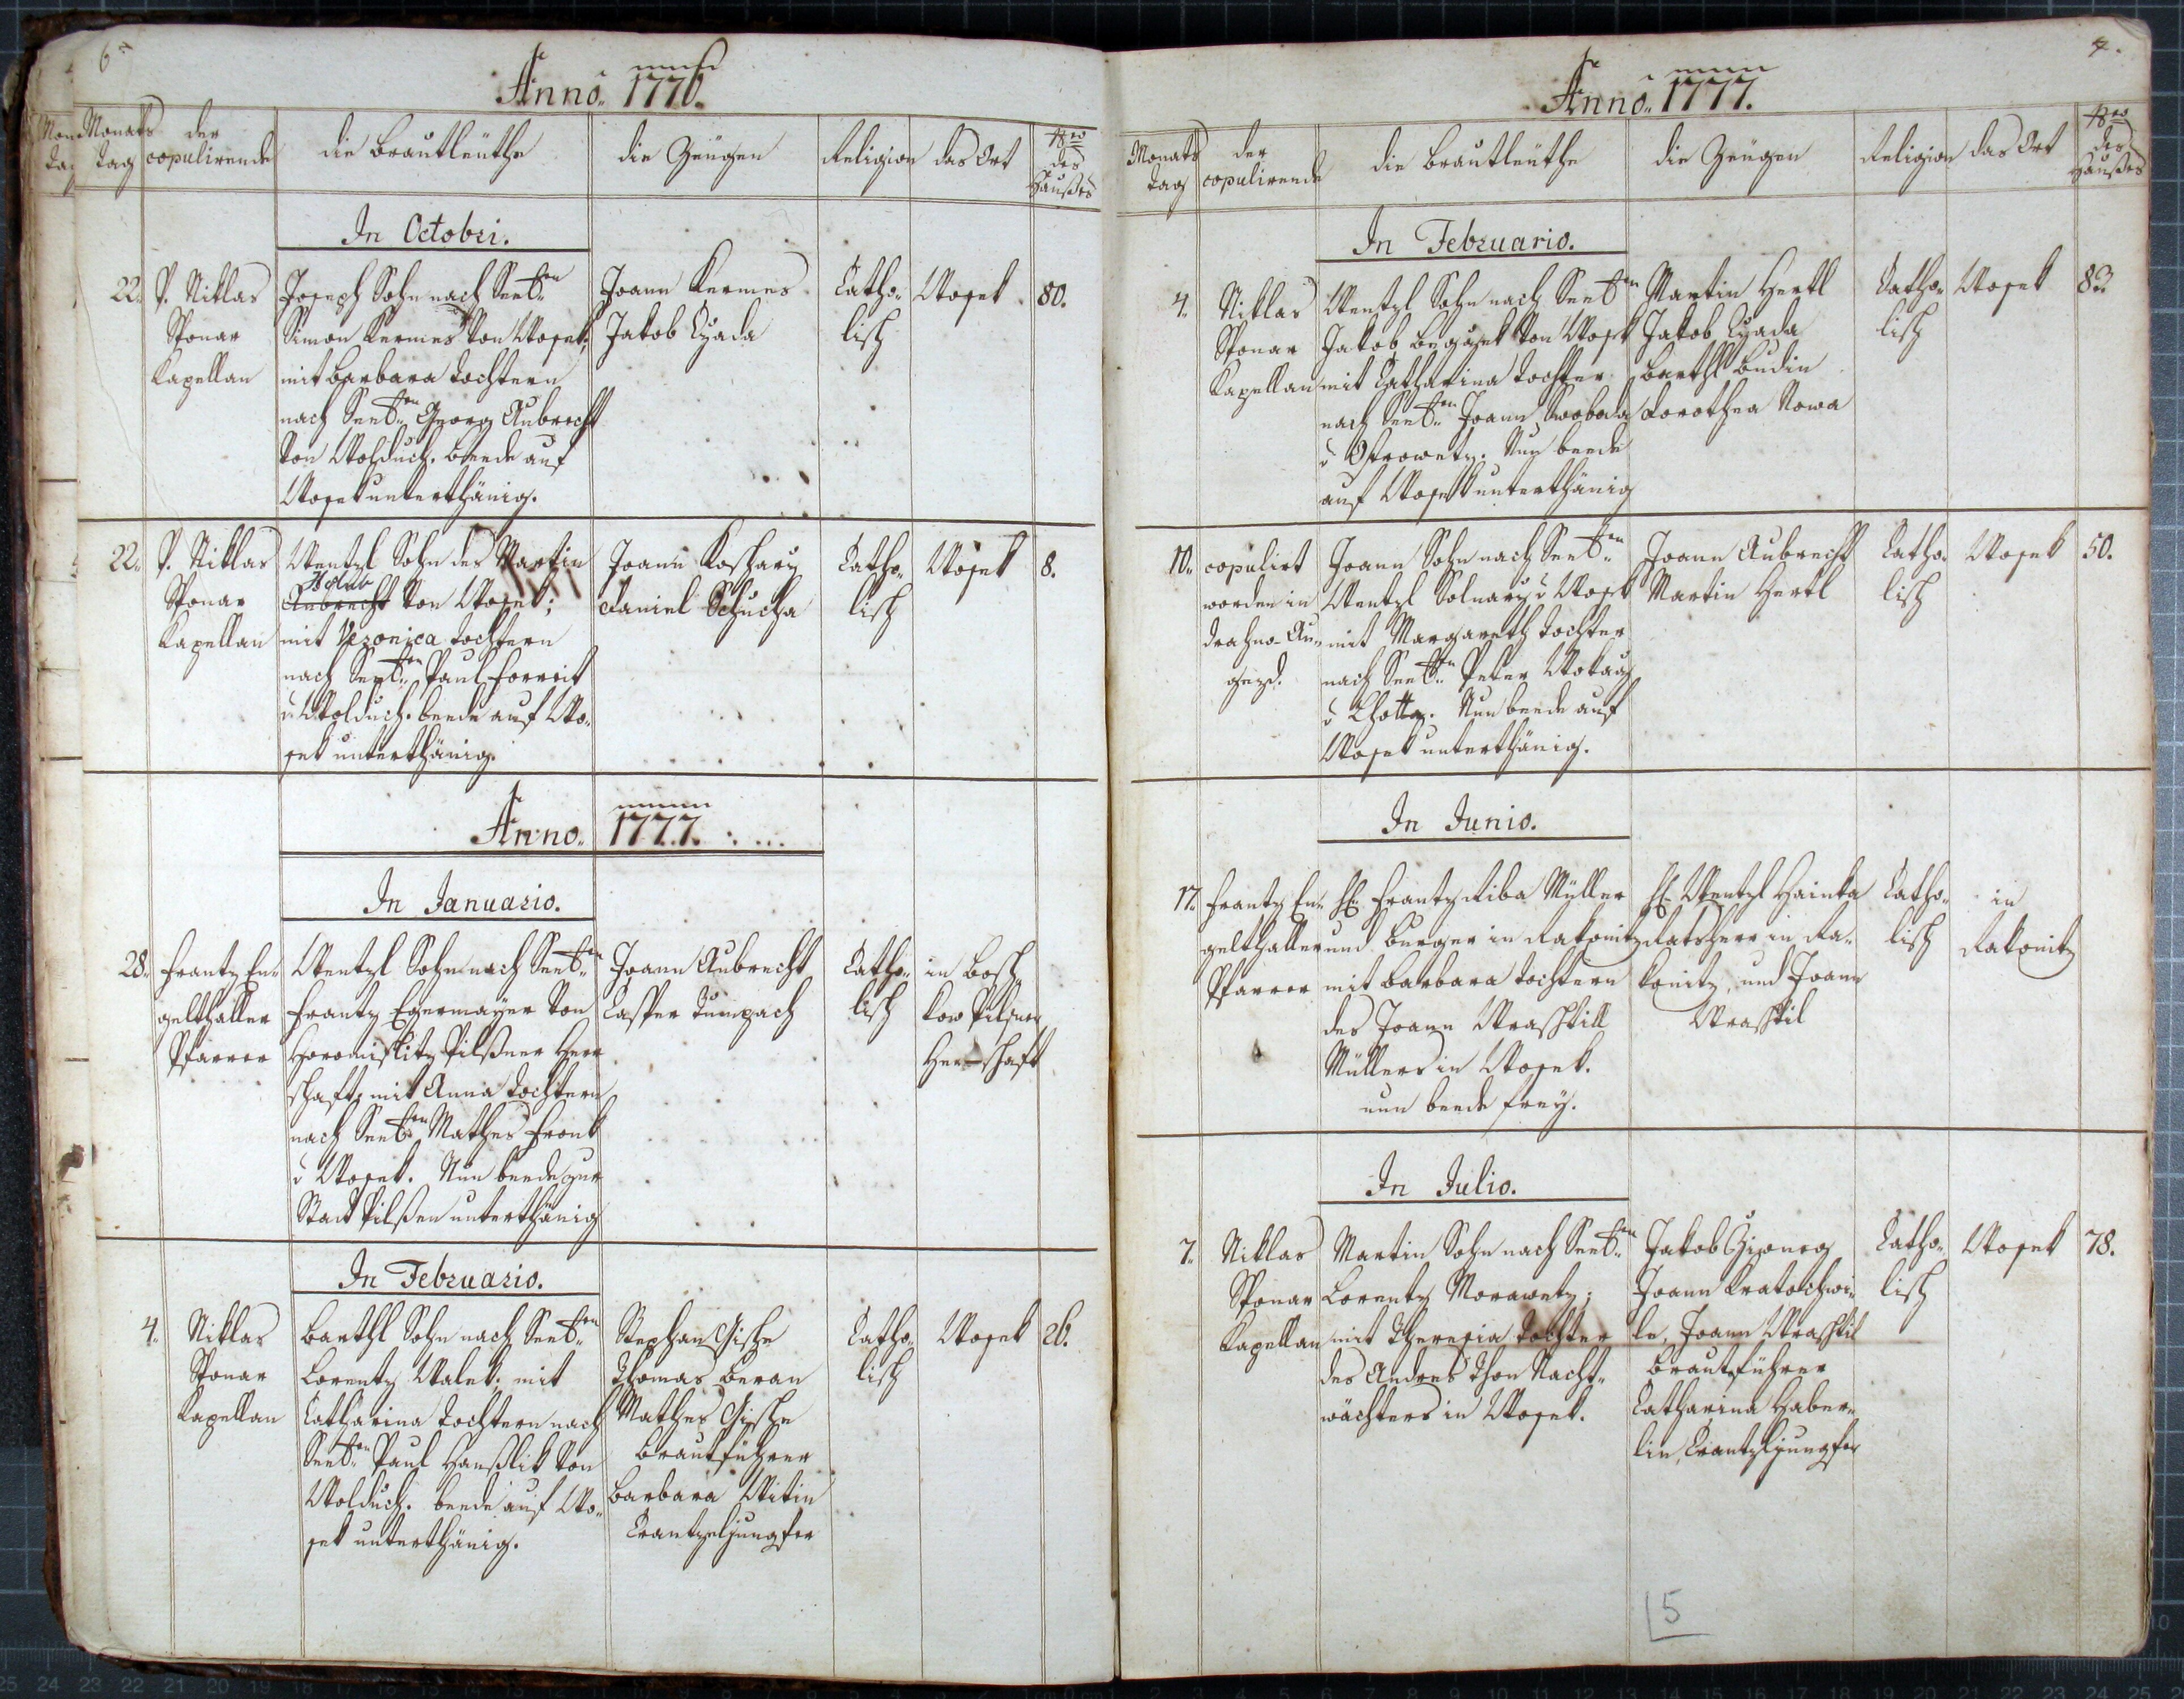 6.
Anno 1776.
Monats tag
der copulirende
die Brautleüthe
die Zeügen
Religion
das Ort
Nro des Haußes
In Octobri.
22.
P. Niklas
Sponar
Kapellan
Joseph Sohn nach Seel.en
Simon Kermes von Wosek;
mit Barbara Tochtern
nach Seel.en Georg Aubrecht
von Wolduch. Beede auf
Wosek unterthänig.
Joann Kermes
Jakob Cžada
Catho-
lisch
Wosek
80.
22.
P. Niklas
Sponar
Kapellan
Wentzl Sohn des Martin
Holub
Aubrecht von Wosek;
mit Veronica Tochtern
nach Seel.en Paul Forreit
v Wolduch. beede auf Wo-
sek unterthänig.
Joann Kosharz
Daniel Schucha
Catho-
lisch
Wosek
8.
Anno 1777.
In Januario.
28.
Frantz En-
gelthaller
Pfarrer
Wentzl Sohn nach Seel.en
Frantz Egermayer von
Horomislitz Pilßner Herr
schaft; mit Anna Tochtern
nach Seel.en Mathes Fronk
v Wosek. Nun beede zur
Stadt Pilßen unterthänig
Joann Aubrecht
Casper Tumpach
Catho-
lisch
in Bosch
kow Pilsner
Herrschaft
In Februario.
4.
Niklas
Sponar
Kapellan
Barthl Sohn nach Seel.en
Lorentz Walek; mit
Catharina Tochtern nach
Seel.en Paul Haußlik von
Wolduch. beede auf Wo-
sek unterthänig.
Stephan Gische
Thomas Beran
Mathes Gische
Brautführer
Barbara Witin
Crantzeljungfer
Catho-
lisch
Wosek
26.
7.
Anno 1777.
Monats tag
der copulirende
die Brautleüthe
die Zeügen
Religion
das Ort
Nro des Haußes
In Februario.
4.
Niklas
Sponar
Kapellan
Wentzl Sohn nach Seel.en
Jakob von Wosek
mit Catharina Tochter
nach Seel.en Joann Swoboda
v Ostrowetz. Nun beede
auf Wosek unterthänig
Martin Hertl
Jakob Cžada
Barthl Budin
Dorothea Nowa
Catho-
lisch
Wosek
83.
10.
copulirt
worden in
Drahno-Au-
gezd.
Joann Sohn nach Seel.en
Wentzl Solnarz v Wosek
mit Margareth Tochter
nach Seel.en Peter
v Lhotta. Nun beede auf
Wosek unterthänig.
Joann Aubrecht
Martin Hertl
Catho-
lisch
Wosek
50.
In Junio.
17.
Frantz En-
gelthaller
Pfarrer
H. Frantz Riba Müller
und Burger in Rakonitz
mit Barbara Tochtern
des Joann Wraschtill
Müllers in Wosek.
nun beede frey.
H. Wentzl Hainka
Rathsherr in Ra-
konitz, und Joann
Wraschtil
Catho-
lisch
in
Rakonitz
In Julio.
7.
Niklas
Sponar
Kapellan
Martin Sohn nach Seel.en
Lorentz Morawetz;
mit Theresia Tochter
des Andres Thon Nacht-
wächters in Wosek.
Jakob
Joann Kratochwi-
le, Joann Wraschtil
Brautführer
Catharina Haber-
lin, Crantzljungfer
Catho-
lisch
Wosek
78.
5